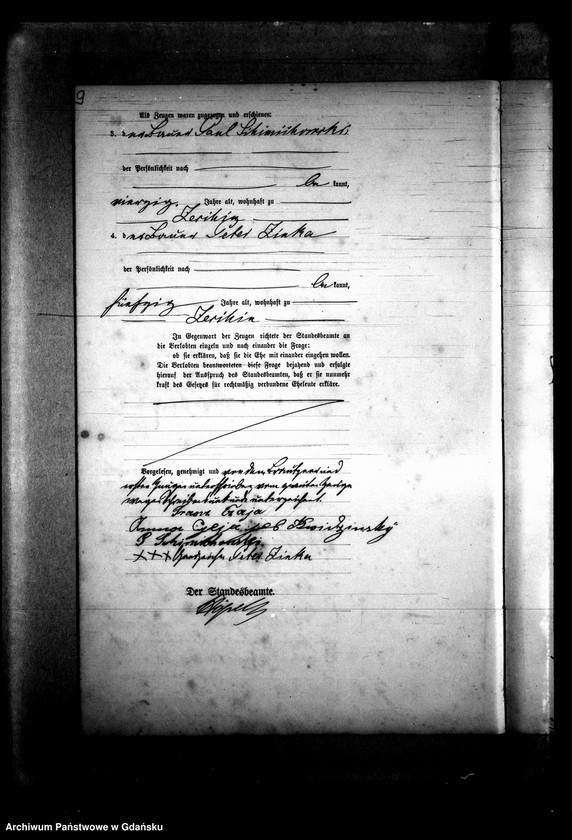 9
Als Zeugen waren zugezogen und erschienen:
3. der Bauer Paul
der Persönlichkeit nach
be kannt,
vierzig Jahre alt, wohnhaft zu
4. der Bauer Peter Zinka
der Persönlichkeit nach
be kannt,
fünfzig Jahre alt, wohnhaft zu
In Gegenwart der Zeugen richtete der Standesbeamte an
die Verlobten einzeln und nach einander die Frage:
ob sie erklären, daß sie die Ehe mit einander eingehen wollen.
Die Verlobten beantworteten diese Frage bejahend und erfolgte
hierauf der Ausspruch des Standesbeamten, daß er sie nunmehr
kraft des Gesetzes für rechtmäßig verbundene Eheleute erkläre.
Vorgelesen, genehmigt und von den Eheleuten und
ersten Zeugen unterschrieben, vom zweiten Zeugen
wegen Schreibensunkunde unterzeichnet.
geb
P
+++ Handzeichen Peter Zinka
Der Standesbeamte.
Archiwum Państwowe w Gdańsku